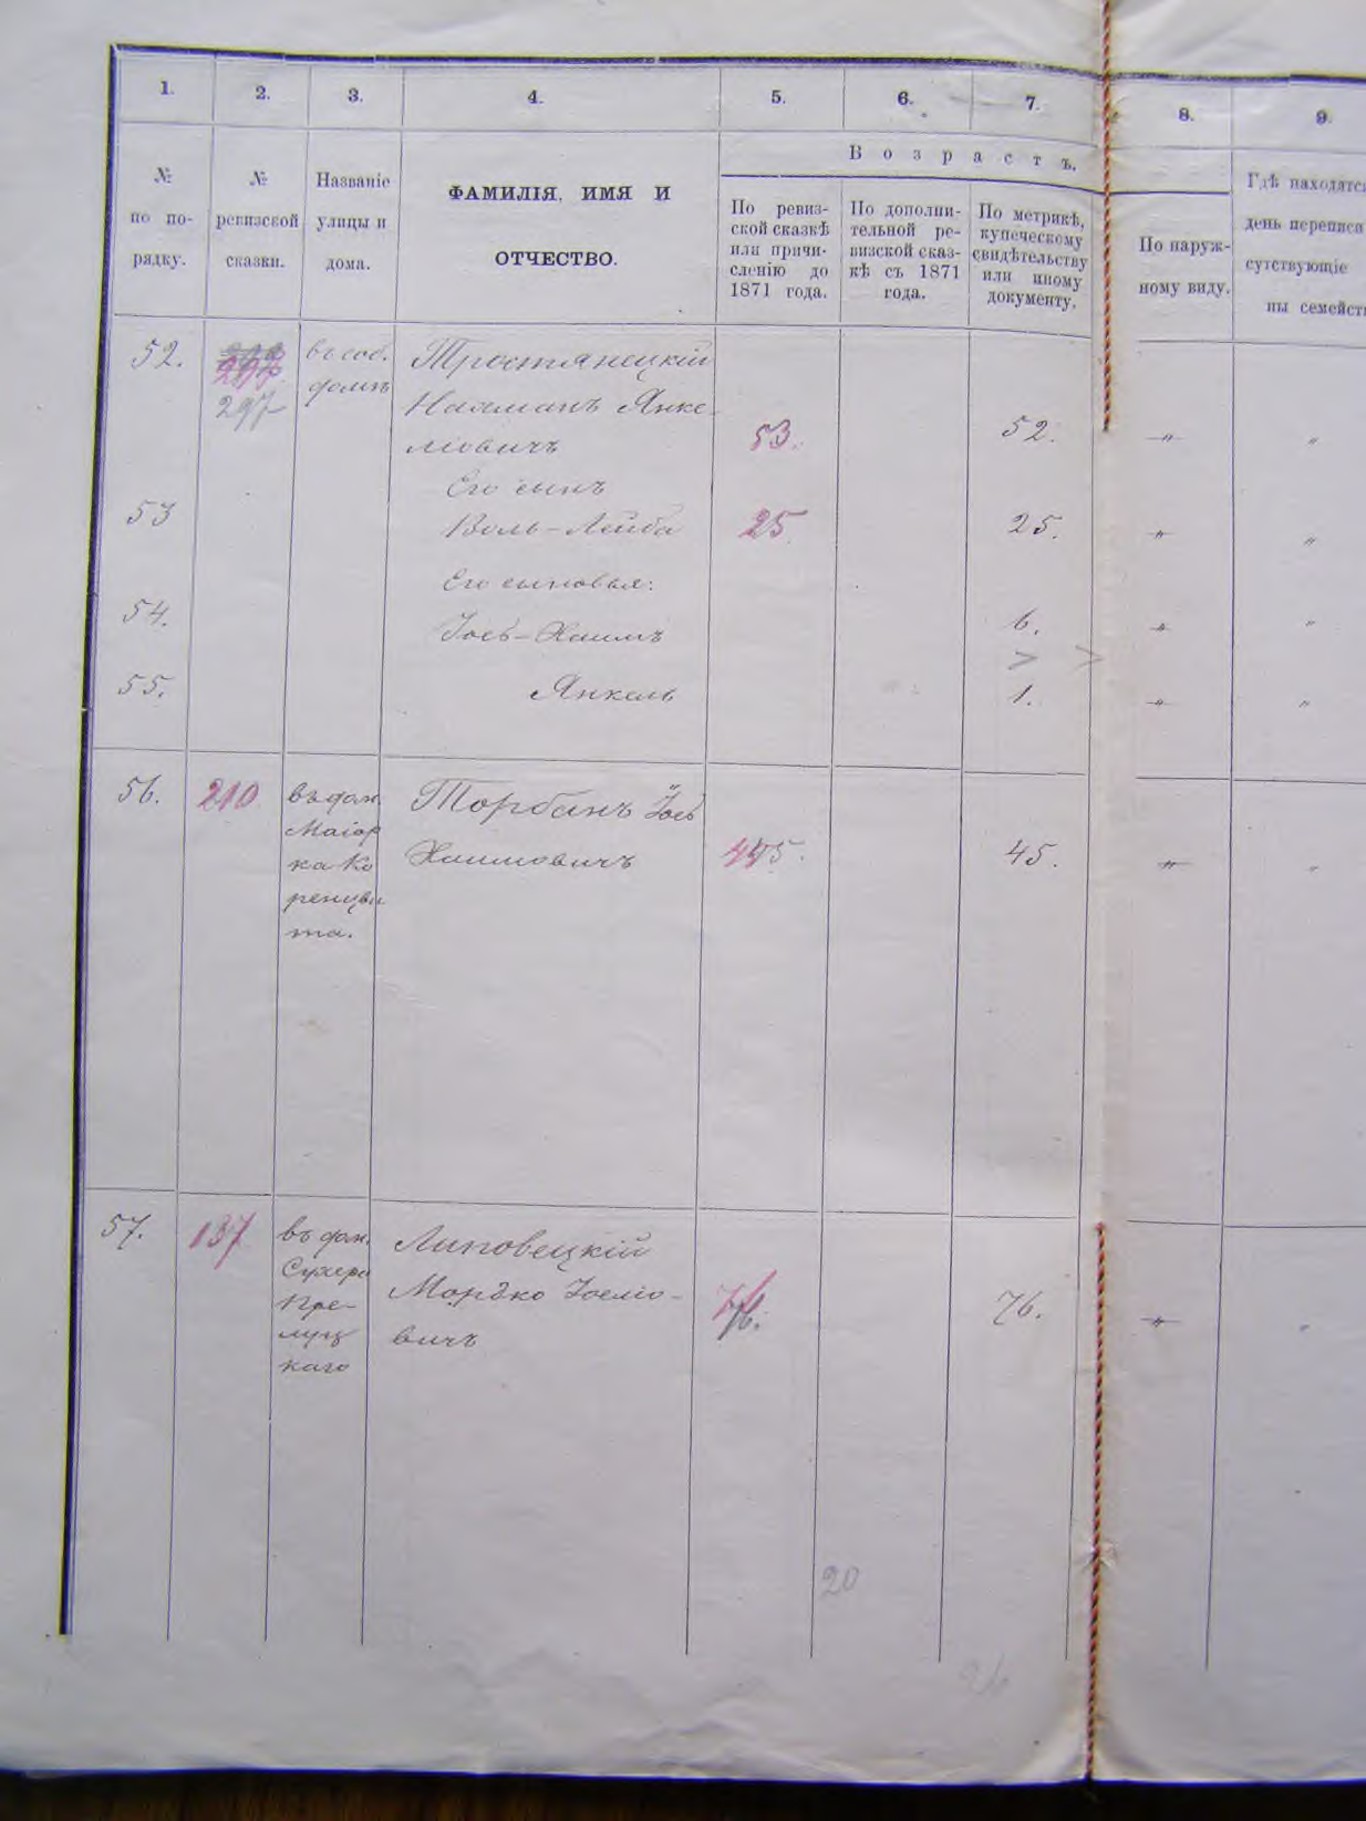 1. 2. 3. 4. 5. 6. 7. 8. 9.
№
по по-
рядку.
№
ревизской
сказки.
Названіе
улицы и
дома.
ФАМИЛІЯ, ИМЯ И
ОТЧЕСТВО.
Возрастъ.
По ревиз-
ской сказкѣ
или причи-
сленію до
1871 года.
По дополни-
тельной ре-
визской сказ-
кѣ съ 1871
года.
По метрикѣ,
купеческому
свидѣтельству
или иному
документу.
По наруж-
ному виду.
Гдѣ находятся
день переписи
сутствующіе
ны семейст
52.
297
297
въ соб.
домѣ
Тростянецкій
Нахманъ Янке-
ліовичъ
53.
52.
〃
〃
Его сынъ
53
Воль-Лейба
25.
25.
〃
〃
Его сыновья:
54.
Іось-Хаимъ
6.
〃
〃
> >
55.
Янкель
1.
〃
〃
56.
210
въ дом.
Маіор
ка Ко
ренцви
та.
Торбанъ Іось
Хаимовичъ
45.
45.
〃
〃
57.
137
въ дом.
Сухера
Пре-
луц
каго
Липовецкій
Мордко Іосліо-
вичъ
76.
76.
〃
〃
20